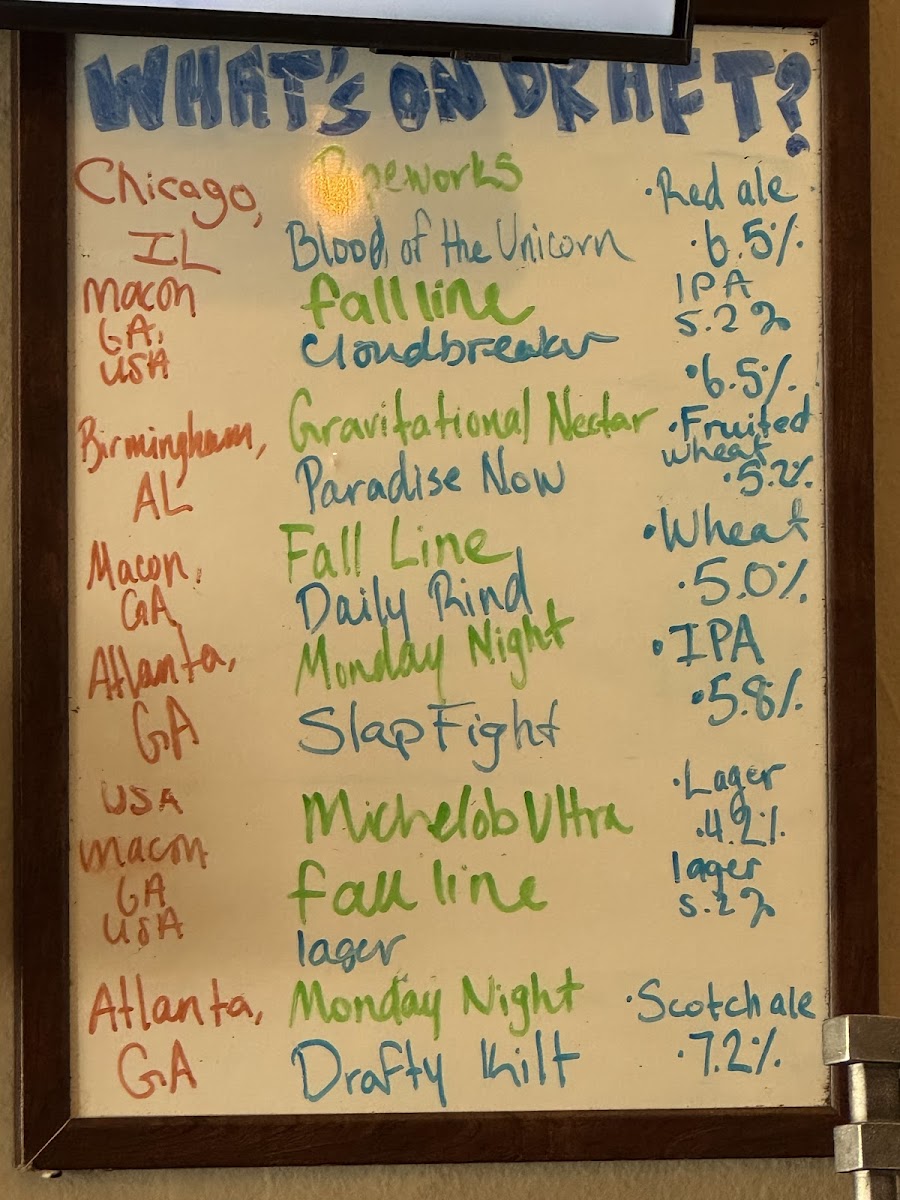 WHAT'S ON DRAFT?
Chicago, IL
Pipeworks
Blood of the Unicorn
•Red ale
•6.5%
Macon GA, USA
fall line
Cloudbreaker
IPA
5.2%
•6.5%
Birmingham, AL
Gravitational Nectar
Paradise Now
•Fruited wheat
•5.2%
Macon, GA
Fall Line
Daily Rind
•Wheat
•5.0%
Atlanta, GA
Monday Night
Slap Fight
•IPA
•5.8%
USA
Michelob Ultra
•Lager
•4.2%
macon GA USA
fall line
lager
lager
5.2%
Atlanta, GA
Monday Night
Drafty Kilt
•Scotch ale
•7.2%